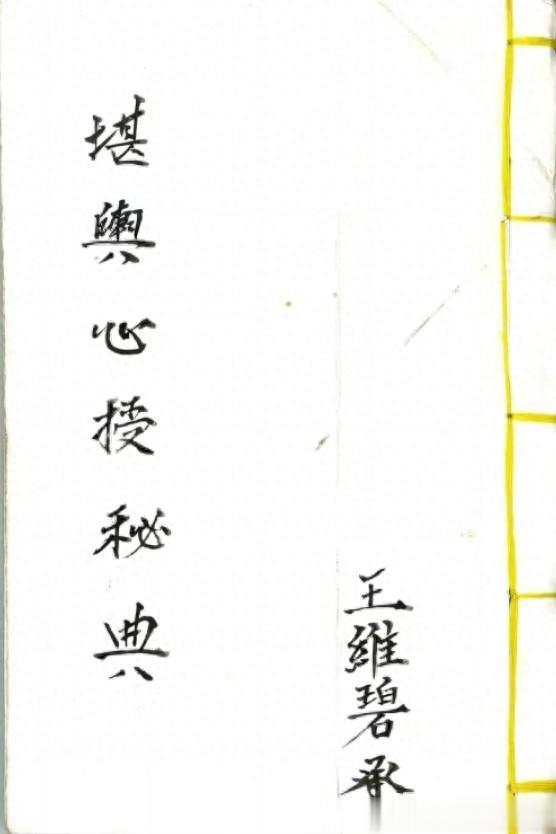 堪輿心授秘典
王維碧承